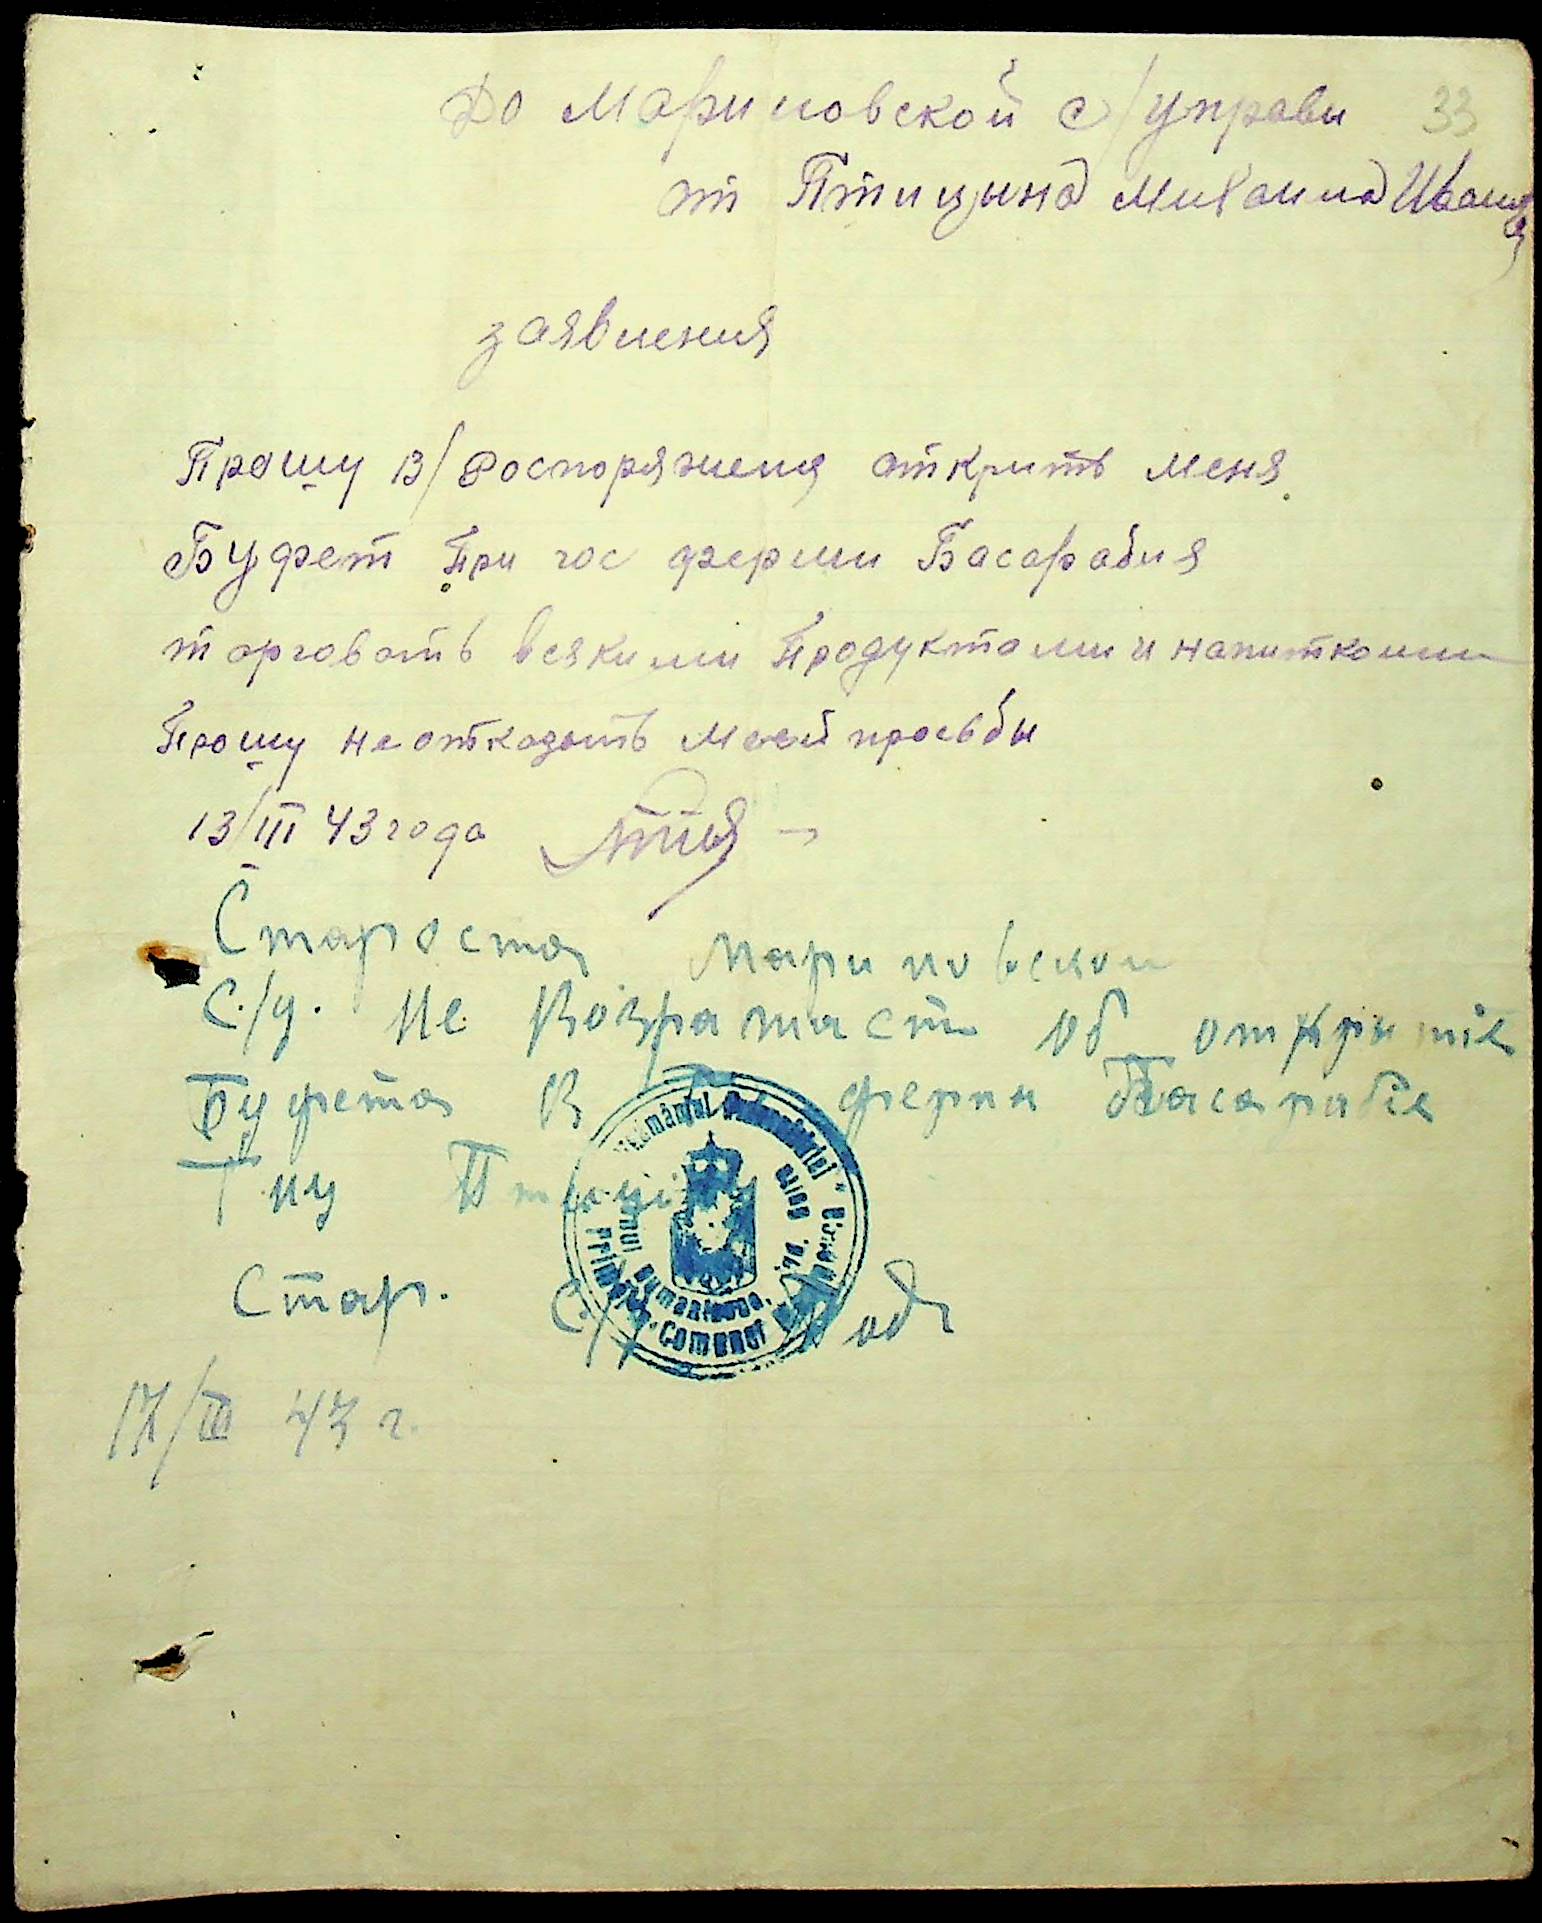 33
До Мариновской с/управи
от Птицына Михаила Ивано
заявления
Прошу в/роспоряжения открить меня
Буфет При гос ферми Басарабия
торговать всякими Продуктами и напитками
Прошу не отказать моей просьбы
13/III 43 года
Староста Мариновской
С./у. не возражаст об открытіе
Буфета в ферми Басарабіе
Г. ну
Стар. С/у
17/III 43 г.